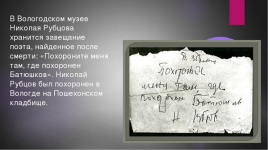 В Вологодском музее
Николая Рубцова
хранится завещание
поэта, найденное после
смерти: «Похороните меня
там, где похоронен
Батюшков». Николай
Рубцов был похоронен в
Вологде на Пошехонском
кладбище.
Похороните
меня там, где
похоронен Батюшков